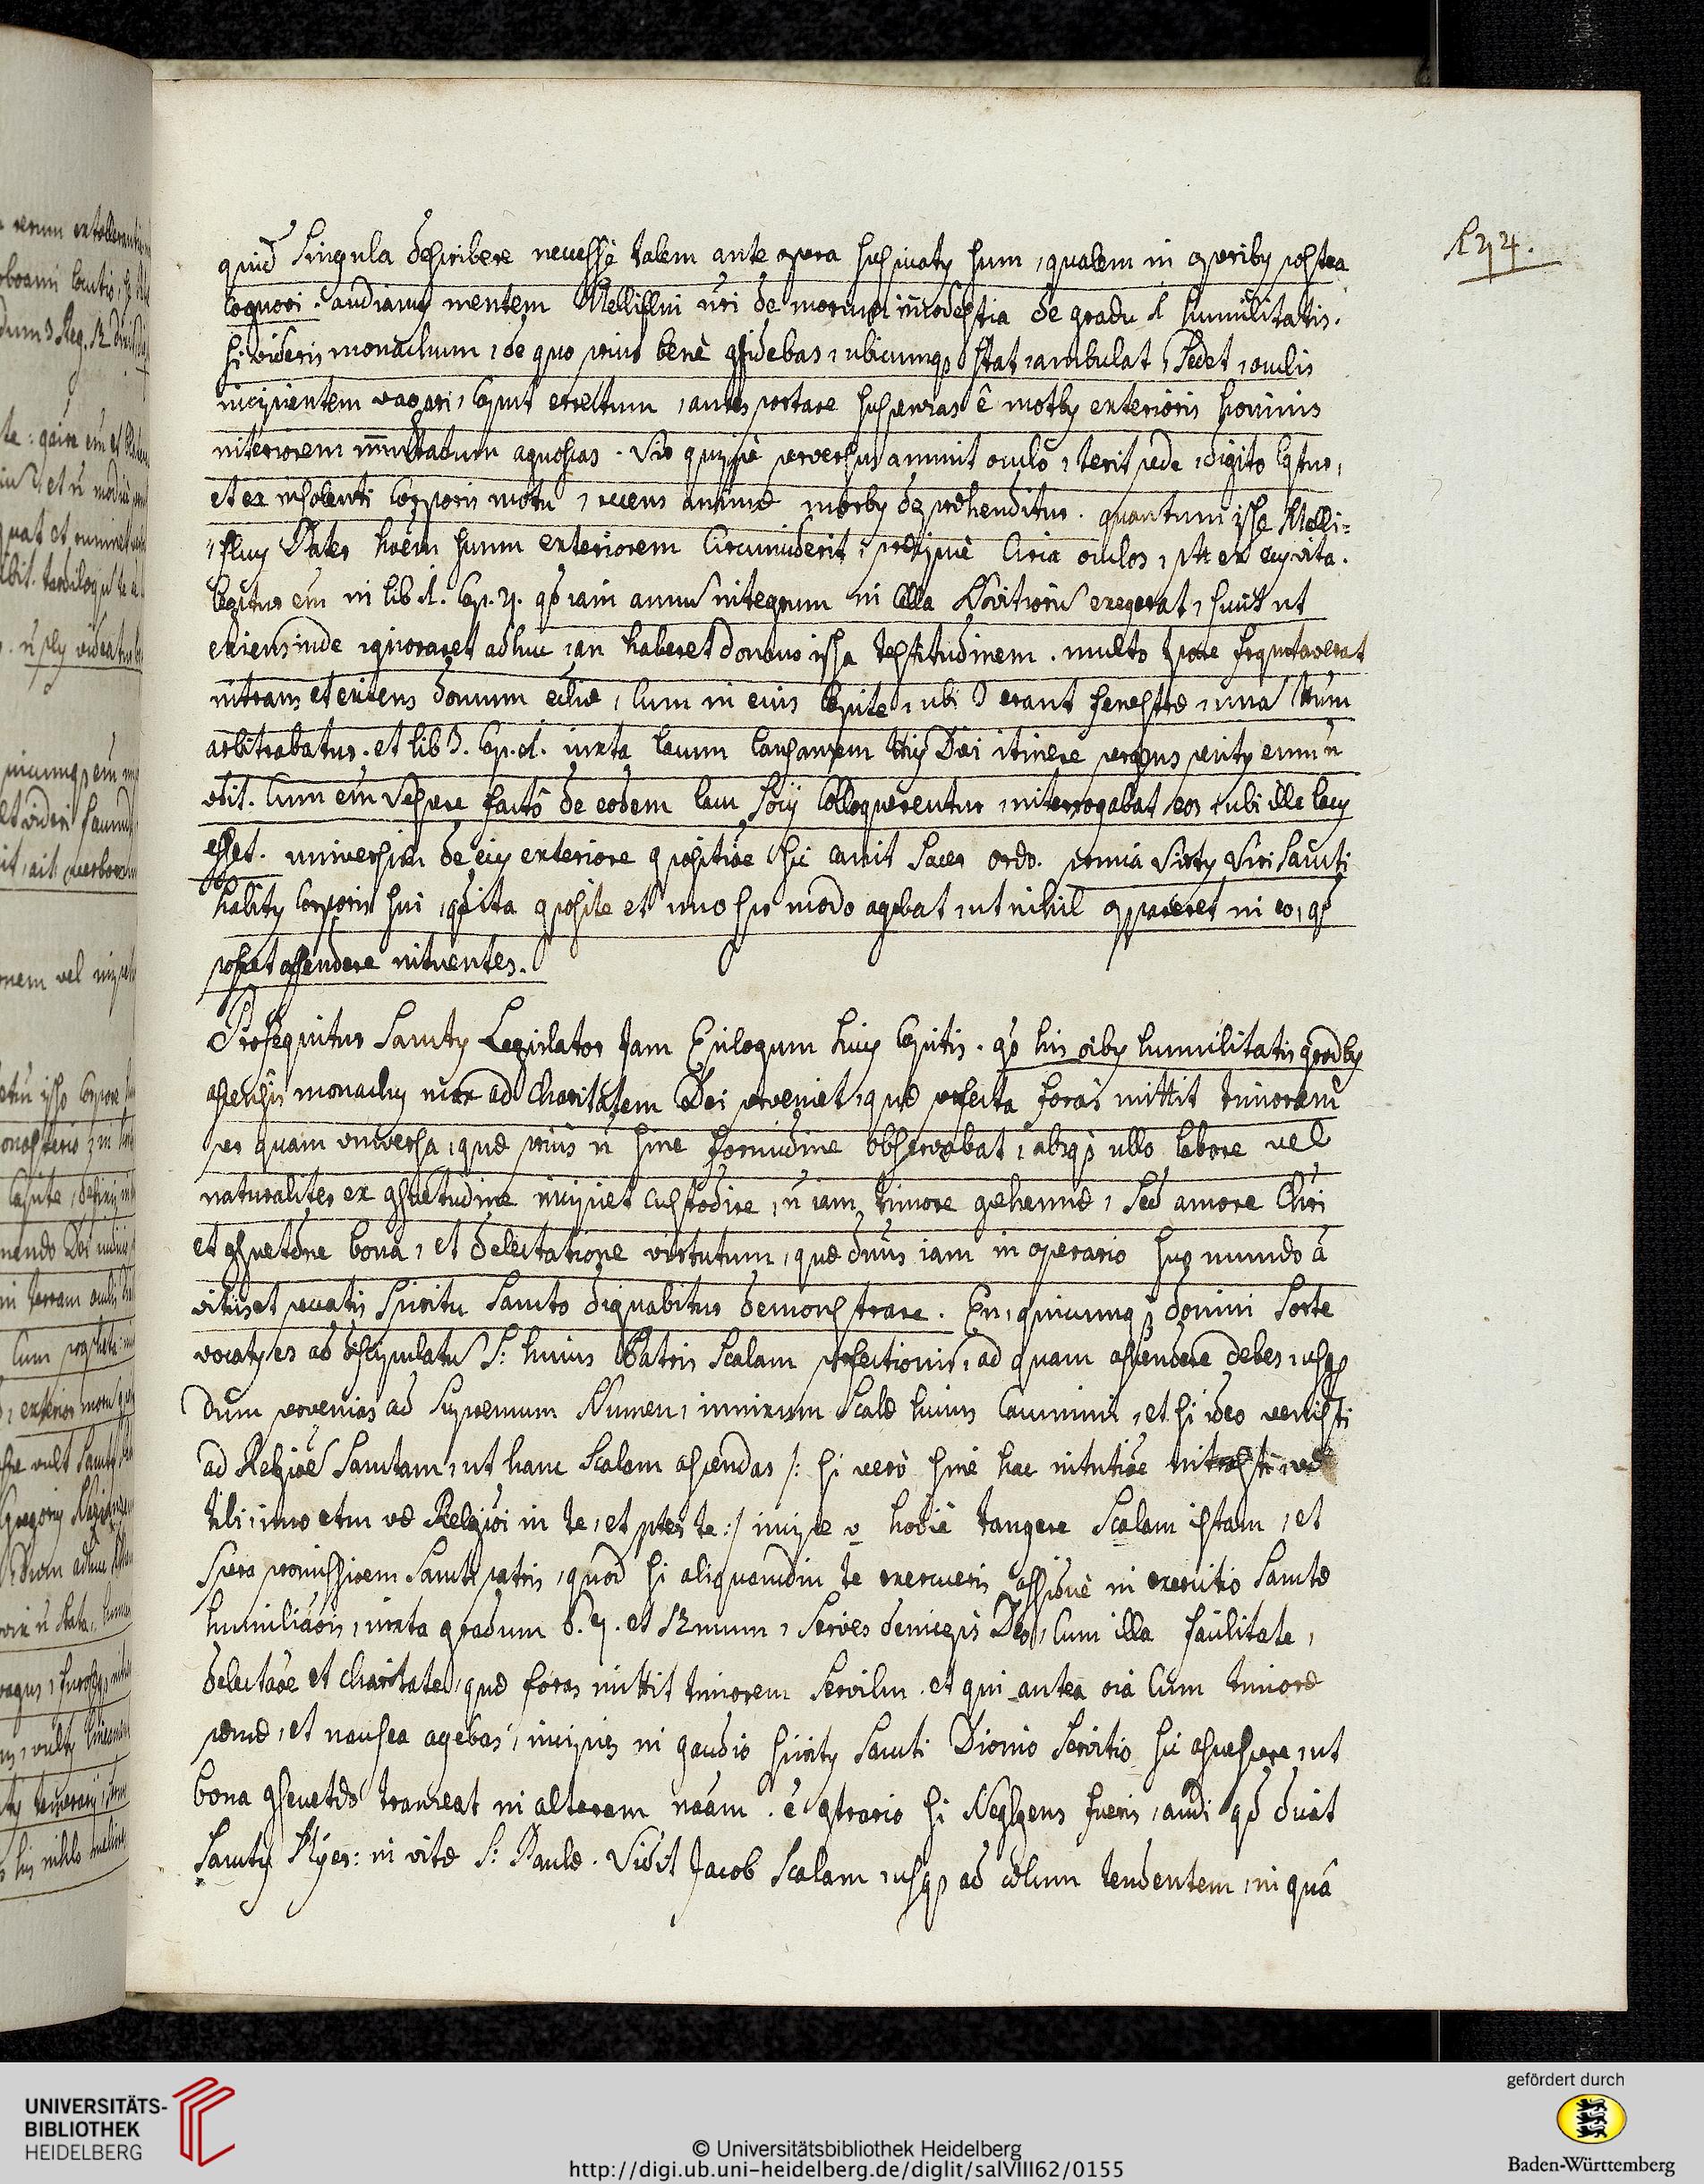 124.
quid Singula describere necesse talem ante opera suspicaty sum, qualem in operiby postea
cognovi. audiamy mentem Melliflui nri de morum immodestia de gradu 1 humilitatis.
si videris monachum, de quo prius benè qfidebas, ubicumqs stat, ambulat, Sedet, oculis
incipientem vagari, Caput erectum, aures portare suspensas è motby exterioris hominis
interiorem immutatum agnoscas. Vir quippè perversus annuit oculo, terit pede, digito loqtur,
et ex insolenti Corporis motu, recens animæ morby deprehenditur. quantum ipse Melli=
fluy Pater hoem suum exteriorem Circumciderit, præcipuè Circa oculos, ptet ex ejy vita.
legitur em in lib 1. Cap. 4. qd iam annū integrum in Cella Novitiorū exegerat, cum
exiens inde ignoraret adhuc, an haberet domus ipsa testitudinem. multo tpore frequentaverat
intrans et exiens domum ecliæ, Cum in eius Capite, ubi 3 erant fenestræ, una tum
arbitrabatur. et lib 3. Cap. 1. iuxta lacum Lausanensem tty Diei itinere pergens penity eum ñ
vidit. Cum em Vespere facto de eodem lacu Socij Colloquerentur, interrogabat eos, ubi ille lacy
esset. universim de ejy exteriore qpositioe sic canit Sacer ordo. prima virty Viri Sancti
haбity Corporis sui, qd ita qposite et uno sp modo agebat, ut nihil appareret in eo, qd
posset offendere intuentes.
Prosequitur Sancty Legislator Jam Epilogum huiy Capitis. qd his oiby humilitatis gradby
ascensis monachy mox ad Charitatem Dei perveniet, quæ perfecta foràs mittit timorem
per quam universa, quæ prius ñ sine formidine observabat, absqs ullo labore vel
naturaliter ex qsuetudine incipiet custodire, ñ iam timore gehennæ, Sed amore Chri
et qsuetdne bona, et delectatione virtutum, quæ dnus iam in operario suo mundo à
vitiis et peccatis Spiritu Sancto dignabitur demonstrare. En, quicumqs domini Sorte
vocaty es ad discipulatū S: huius Patris Scalam perfectionis, ad quam ascendere debes, usqs
dum pervenias ad Supremum Numen, innixum Scalæ huius Cacumini, et si ideo venisti
ad Religioē Sanctam, ut hanc Scalam ascendas /: si verò sine hac intutioe intrasti, væ
tibi, imo etm væ Religioi in te, et pter te :/ incipe v hodiè tangere Scalam istam, et
Spera promissioem Sancti patris, quod si aliquamdiu te exercueris assiduè in exercitio Sanctæ
humiliaois, iuxta gradum 6. 7. et 12mum, Servies deniqs Deo, Cum illa facilitate,
delectaoe et charitate, quæ foras mittit timorem Servilem. et qui antea oia Cum timore
pœnæ, et nausea agebas, incipies in gaudio Spirity Sancti Divino Servitio sic assuescere, ut
bona qsuetdo transeat in alteram naam. è qtrario si Negligens fueris, audi qd dicat
Sancty Hyer: in vitæ S: Paulæ. Vidit Jacob Scalam usqs ad cælum tendentem, in quâ
UNIVERSITÄTS-
BIBLIOTHEK
HEIDELBERG
© Universitätsbibliothek Heidelberg
http://digi.ub.uni-heidelberg.de/diglit/salVIII62/0155
gefördert durch
Baden-Württemberg